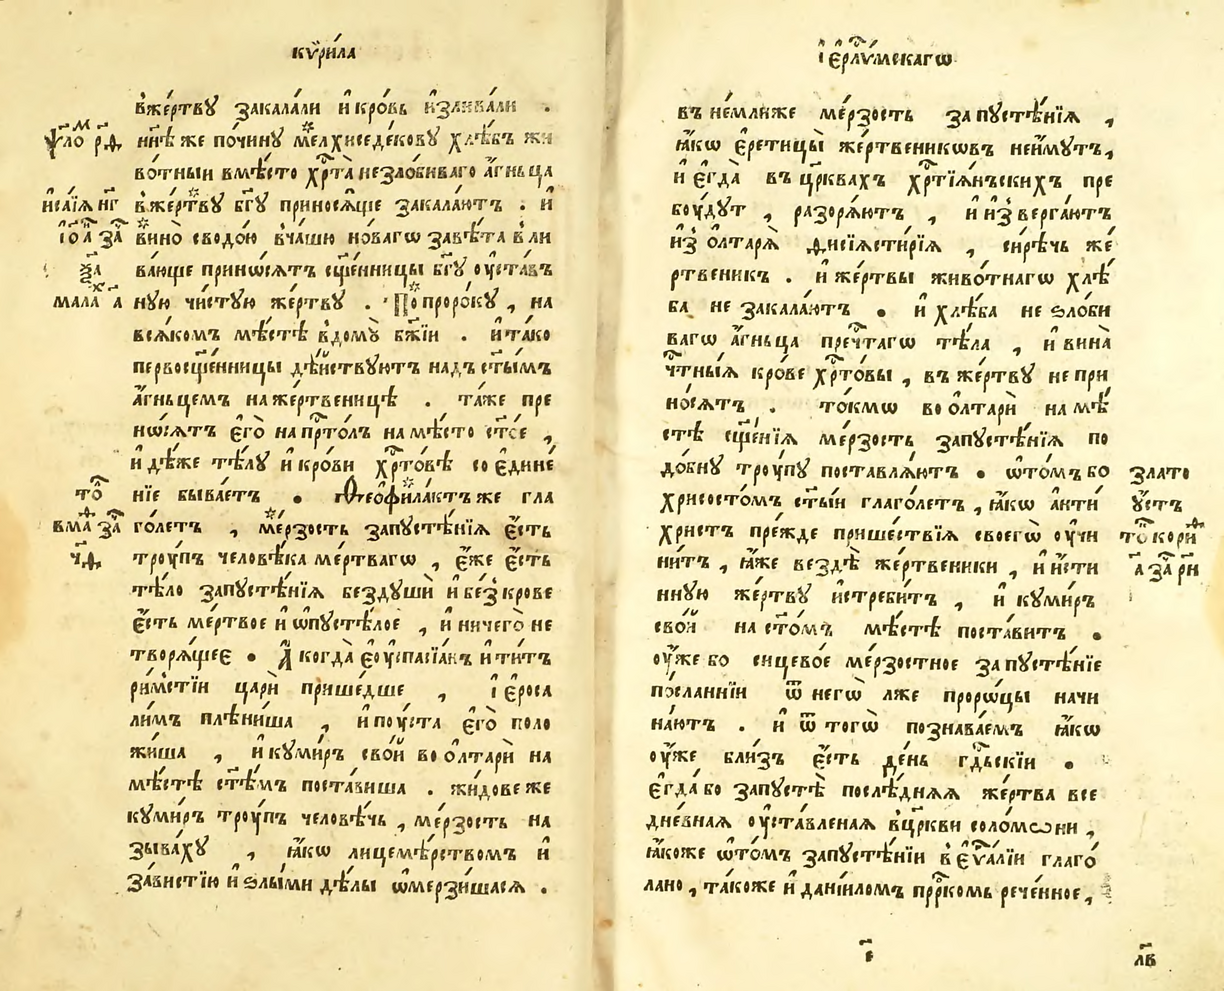 кѷри́ла
вже́ртвꙋ закала́ли и҆ кро́вь и҆злива́ли .
ѱало́м рд҃ нн҃ѣ же почи́нꙋ мелхиседе́ковꙋ хлѣ́бъ жи
во́тныи вмѣ́сто хрⷭ҇та̀ незло́биваго а҆́гньца
и҆са́їѧ нг҃ вже́ртвꙋ бг҃ꙋ приносѧ́ще закала́ютъ . и҆
і҆ѡа҃ за вино̀ сводо́ю вча́шю но́вагѡ завѣ́та вли
ѯа ва́юще прино́сѧтъ сщ҃е́нницы бг҃ꙋ оу҆ста́въ
мала́х а нꙋю чи́стꙋю же́ртвꙋ . По проро́кꙋ , на
всѧ́комъ мѣ́стѣ вдомꙋ̀ бж҃їи . и҆та́ко
первосщ҃е́нницы дѣ́йствꙋютъ надъ ст҃ы́мъ
а҆́гньцемъ наже́ртвеницѣ . та́же пре
но́сѧтъ є҆го̀ напрⷭ҇то́лъ намѣ́сто ст҃о́е ,
и҆дѣ́же тѣ́лꙋ и҆ кро́ви хрⷭ҇то́вѣ соедине́
нїе быва́етъ . Ѳео҆фила́ктъ же гла
го́летъ , ме́рзость запꙋстѣ́нїѧ є҆́сть
чд҃ трꙋ́пъ человѣ́ка ме́ртвагѡ , є҆́же є҆́сть
тѣ́ло запꙋстѣ́нїѧ бездꙋшѝ и҆ без̾ кро́ве
є҆́сть ме́ртвое и҆ ѡ҆пꙋстѣ́лое , и҆ ничего̀ не
творѧ́щее . А҆ когда̀ еоу҆спасїа́нъ и҆ ти́тъ
ри́мстїи царѝ прише́дше , і҆ероса
ли́мъ плѣни́ша , и҆ поу́ста є҆го̀ поло
жи́ша , и҆ кꙋми́ръ сво́й во ѻ҆лтарѝ на
мѣ́стѣ ст҃ѣ́мъ поста́виша . жи́дове же
кꙋми́ръ трꙋ́пъ человѣ́чь , ме́рзость на
зыва́хꙋ , ꙗ҆́ко лицемѣ́рствомъ и҆
за́вистїю и҆ ѕлы́ми дѣ́лы ѡ҆мерзи́шасѧ .
і҆єрⷭ҇лꙋ́мскагѡ
въ не́млиже ме́рзость запꙋстѣ́нїѧ ,
ꙗ҆́кѡ є҆рети́цы же́ртвеникѡвъ неи҆́мꙋтъ ,
и҆ є҆гда̀ въ цр҃квахъ хрⷭ҇тїѧ́ньскихъ пре
бꙋ́дꙋт , разорѧ́ютъ , и҆ и҆з̾верга́ютъ
и҆з̾ ѻ҆лтарѧ̀ ѳисїѧсти́рїѧ , си́рѣчь же́
ртвеник . и҆ же́ртвы живо́тнагѡ хлѣ́
ба не закала́ютъ . и҆ хлѣ́ба не ѕло́би
вагѡ а҆́гньца пречⷭ҇тагѡ тѣ́ла , и҆ вина̀
чⷭ҇тны́ѧ кро́ве хрⷭ҇то́вы , въ же́ртвꙋ не при
но́сѧтъ . то́кмѡ во ѻ҆лтарѝ на мѣ́
стѣ сщ҃е́нїѧ ме́рзость запꙋстѣ́нїѧ по
до́бнꙋ трꙋ́пꙋ поставлѧ́ютъ . ѡ҆то́мъ бо злато
хрисосто́мъ ст҃ы́и глаго́летъ , ꙗ҆́кѡ анти ꙋ҆́стъ
хри́стъ пре́жде прише́ствїѧ своегѡ̀ оу҆чи
ни́тъ , ꙗ҆́же вездѣ̀ же́ртвеники , и҆ и҆́сти
ннꙋю же́ртвꙋ и҆стреби́тъ , и҆ кꙋми́ръ
сво́й на ст҃о́мъ мѣ́стѣ поста́вит .
оу҆́же бо сицево́е ме́рзостное запꙋстѣ́нїе
по́сланнїи ѿ негѡ̀ лже проро́цы начи
на́ютъ . и҆ ѿ тогѡ̀ познава́емъ ꙗ҆́кѡ
оу҆́же бли́зъ є҆́сть де́нь гдⷭ҇ьскїи .
є҆гда́ бо запꙋстѣ̀ послѣ́днѧѧ же́ртва все
дне́внаѧ оу҆ста́вленаѧ вцр҃кви соломѡ́ни ,
ꙗ҆́коже ѡ҆то́мъ запꙋстѣ́нїи в є҆ѵⷢ҇а́лїи глаго́
лано , та́коже и҆ данїи́ломъ прⷪ҇ро́комъ рече́нное ,
лв҃